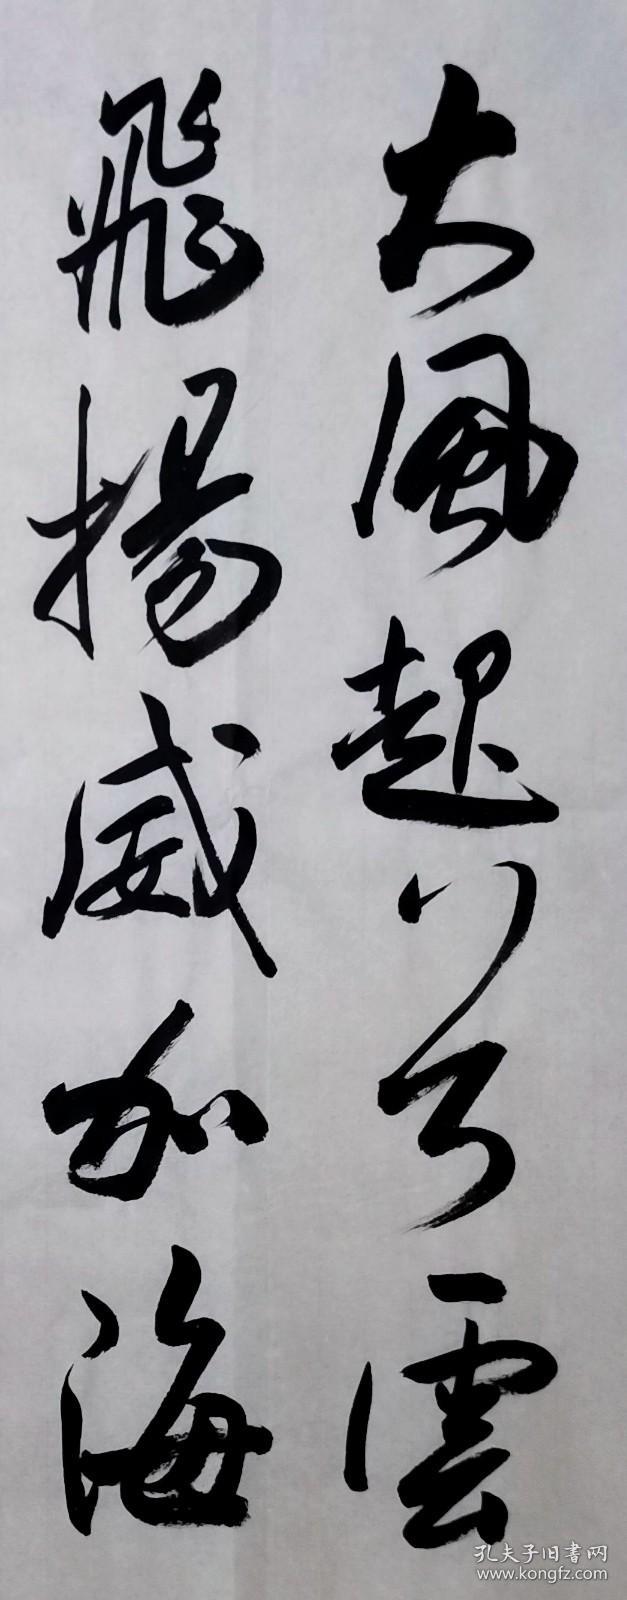 大風起兮雲
飛揚威加海
孔夫子旧書网
www.kongfz.com